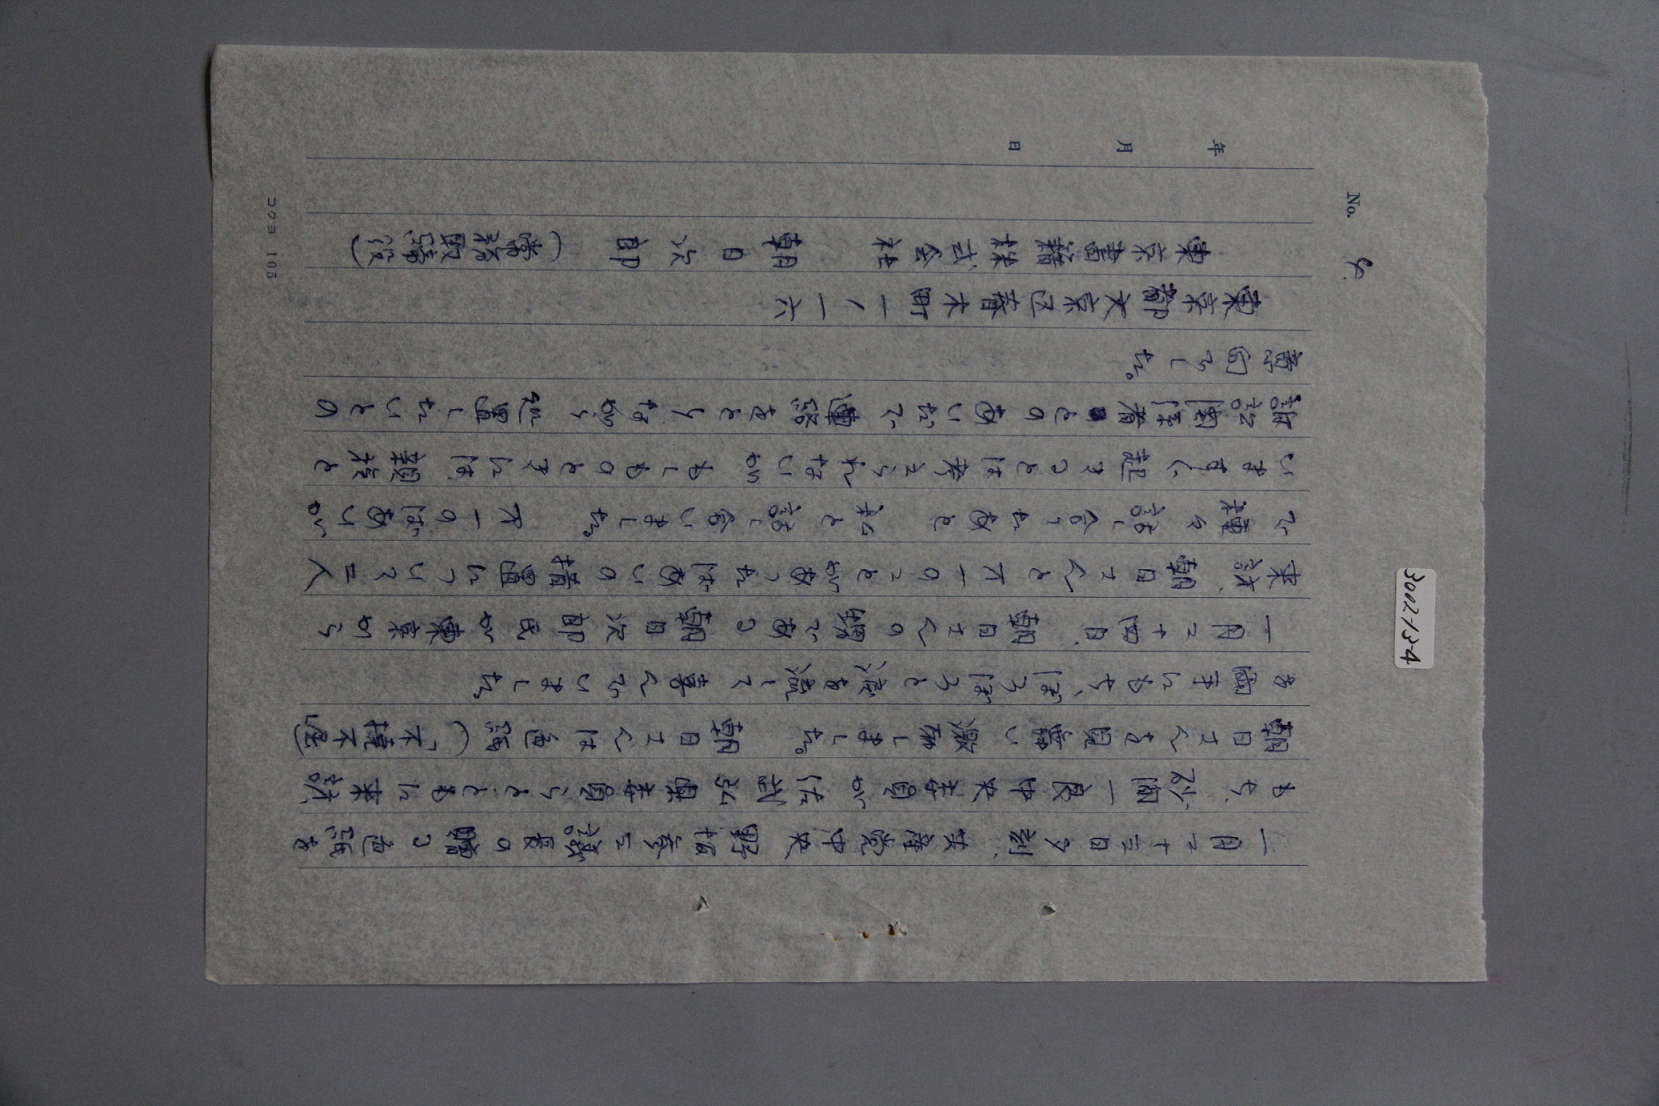 No. 4.
年 月 日
一月二十三日夕刻、共産党中央 野坂参三議長の贈る色紙を
もち、砂間一良中央委員が佐武弘県委員らとともに来訪、
朝日さんを見舞い激励しました。 朝日さんは色紙(「不撓不屈」)
を両手にもち、ほろほろと涙を流して喜んでいました。
一月二十四日、朝日さんの甥である朝日次郎氏が東京から
来訪、朝日さんと万一のことがあったばあいの措置について二人
で種々話し合ったあと 私と話し合いました。 万一のばあいが
いますぐ起ることは考えられないが もしものときには 親族と
訴訟関係者とのあいだで連絡をとりながら処置したいとの
意向でした。
東京都文京区春木町一ノ一六
東京書籍株式会社 朝日次郎 (常務取締役)
コクヨ 105
3002-13-4